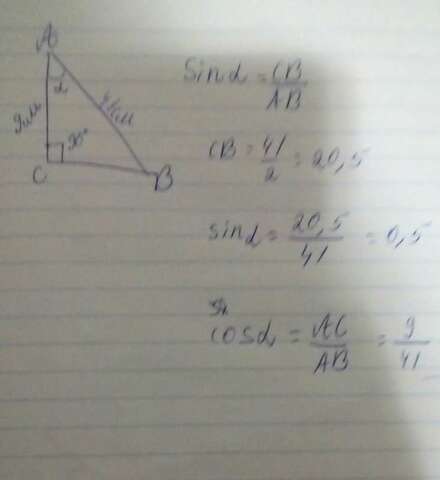 A
α
9 см 41см
90°
C B
Sin α = CB/AB
CB = 41/2 = 20,5
sin α = 20,5/41 = 0,5
cos α = AC/AB = 9/41